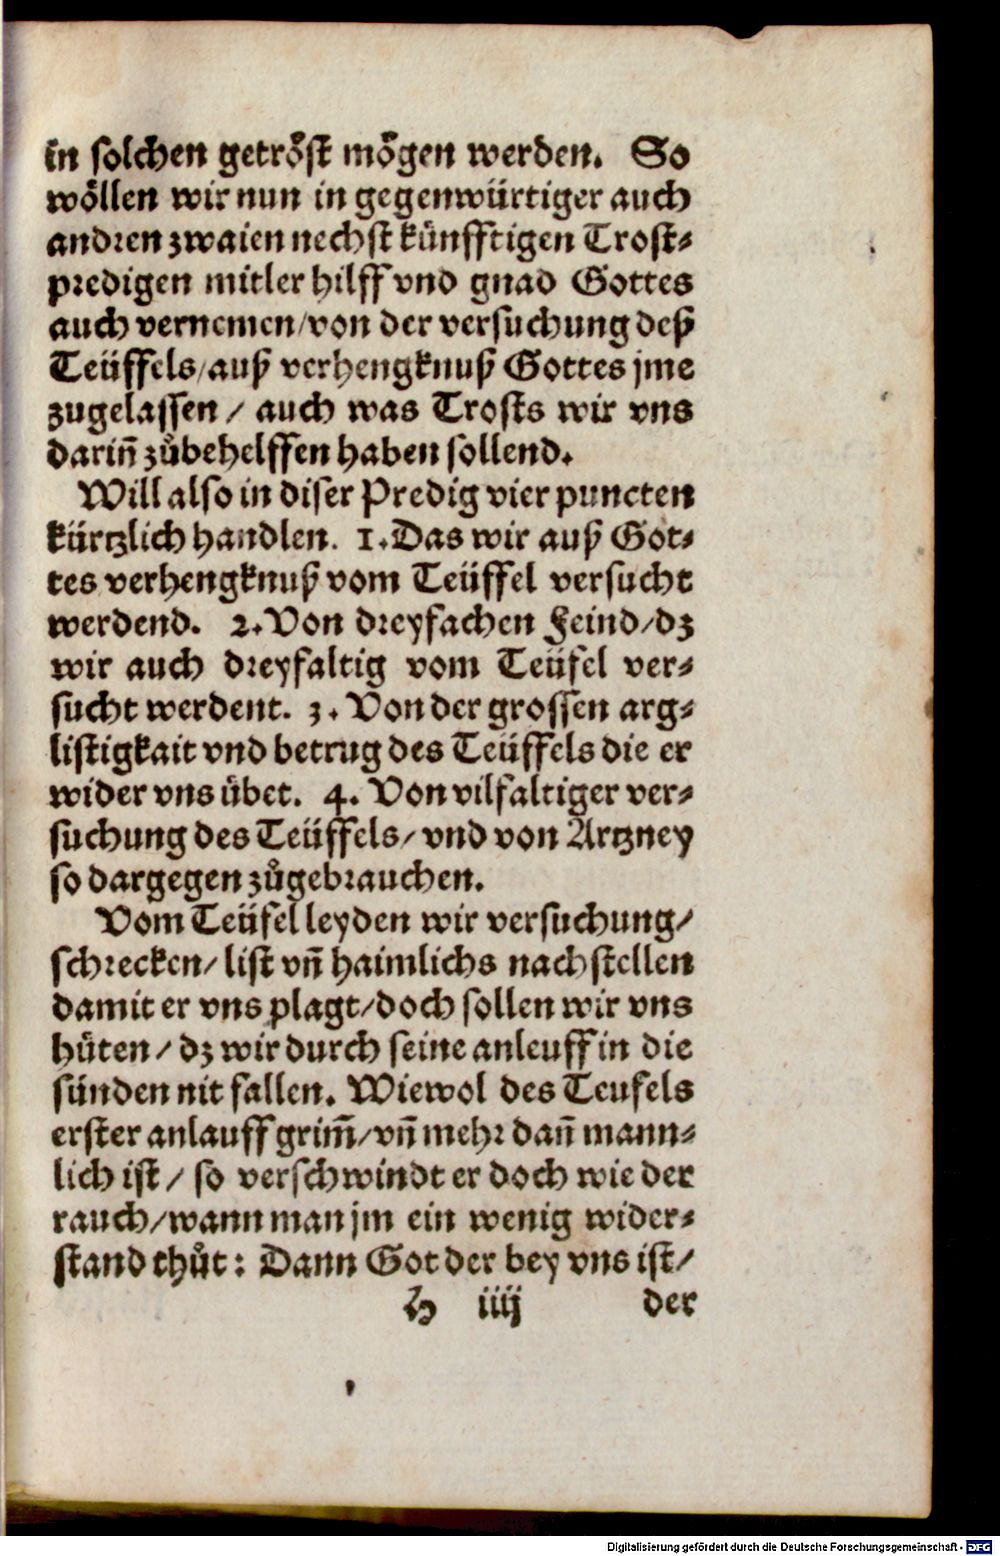 in solchen getröst mögen werden. So
wöllen wir nun in gegenwürtiger auch
andren zwaien nechst künfftigen Trost⸗
predigen mitler hilff vnd gnad Gottes
auch vernemen/ von der versuchung deß
Teüffels/ auß verhengknuß Gottes jme
zugelassen / auch was Trosts wir vns
darin̄ zůbehelffen haben sollend.
Will also in diser Predig vier puncten
kürtzlich handlen. 1. Das wir auß Got⸗
tes verhengknuß vom Teüffel versucht
werdend. 2. Von dreyfachen Feind/ dz
wir auch dreyfaltig vom Teüfel ver⸗
sucht werdent. 3. Von der grossen arg⸗
listigkait vnd betrug des Teüffels die er
wider vns übet. 4. Von vilfaltiger ver⸗
suchung des Teüffels/ vnd von Artzney
so dargegen zůgebrauchen.
Vom Teüfel leyden wir versuchung/
schrecken/ list vn̄ haimlichs nachstellen
damit er vns plagt/ doch sollen wir vns
hüten / dz wir durch seine anleuff in die
sünden nit fallen. Wiewol des Teufels
erster anlauff grim̄/ vn̄ mehr dan̄ mann⸗
lich ist / so verschwindt er doch wie der
rauch/ wann man jm ein wenig wider⸗
stand thůt: Dann Got der bey vns ist/
h iiij der
Digitalisierung gefördert durch die Deutsche Forschungsgemeinschaft - DFG